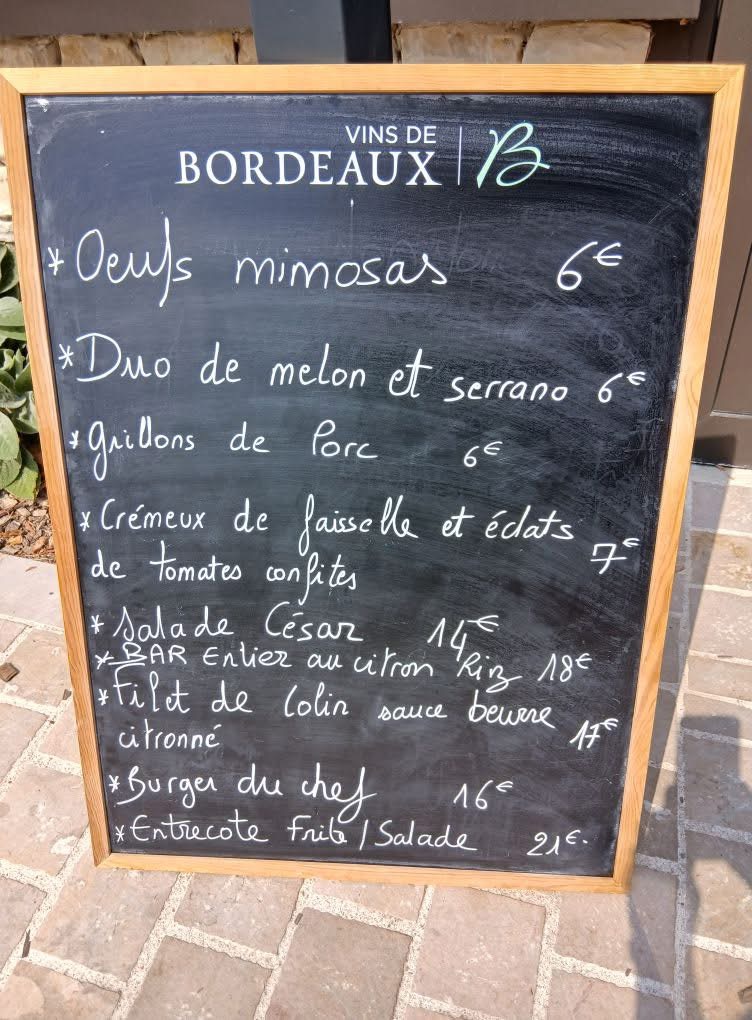 VINS DE
BORDEAUX | B
* Oeufs mimosas 6€
* Duo de melon et serrano 6€
* Grillons de Porc 6€
* Crémeux de faisselle et éclats
de tomates confites 7€
* Salade César 14€
* BAR Entier au citron Riz 18€
* Filet de Colin sauce beurre
citronné 17€
* Burger du chef 16€
* Entrecote Frite / Salade 21€.